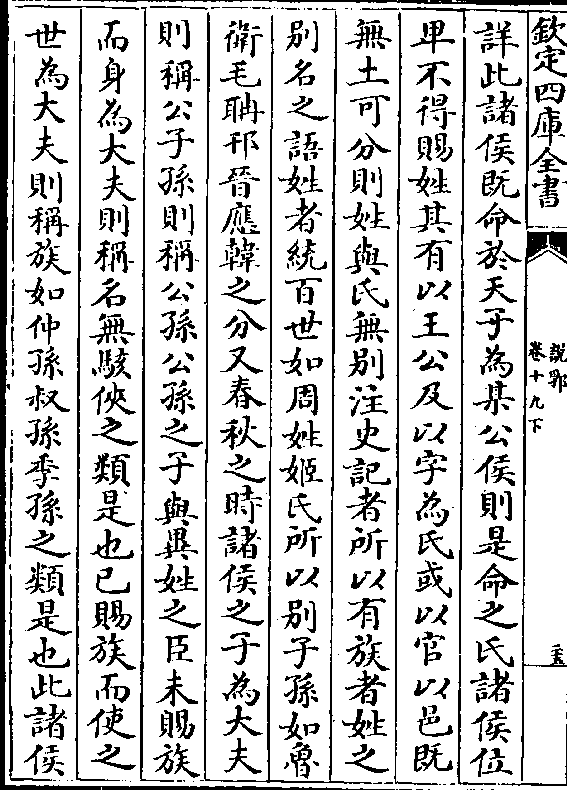 欽定四庫全書
說郛
卷十九下
三五
詳此諸侯既命於天子為某公侯則是命之氏諸侯位
卑不得賜姓其有以王公及以字為氏或以官以邑既
無土可分則姓與氏無別注史記者所以有族者姓之
別名之語姓者統百世如周姓姬氏所以別子孫如魯
衛毛聃邗晉應韓之分又春秋之時諸侯之子為大夫
則稱公子孫則稱公孫公孫之子與異姓之臣未賜族
而身為大夫則稱名無駭俠之類是也已賜族而使之
世為大夫則稱族如仲孫叔孫季孫之類是也此諸侯